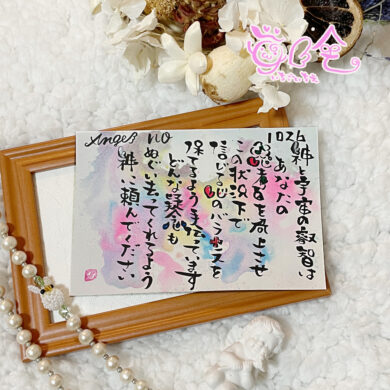 Angel NO
1026
神と宇宙の叡智は
あなたの
を向上させ
この状況下で
信じる心のバランスを
保てるよう手伝っています
どんな疑念も
ぬぐい去ってくれるよう
神に頼んでください